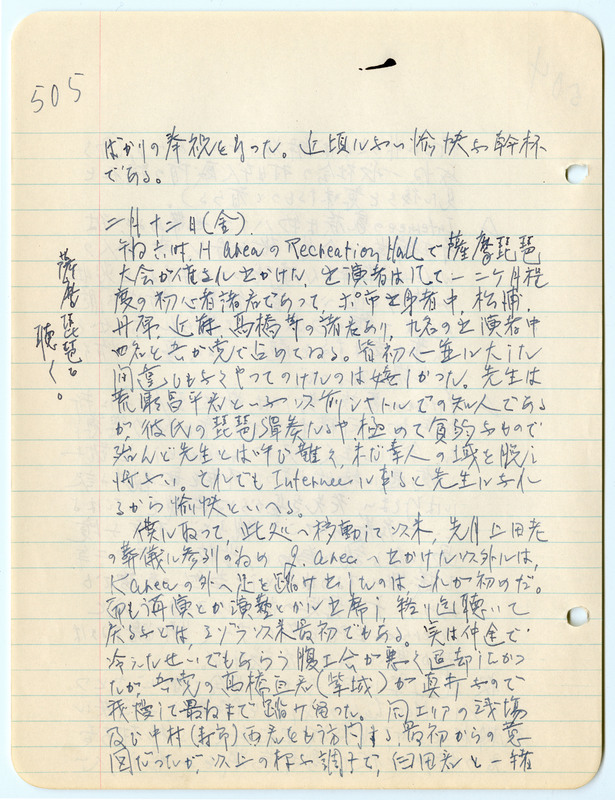 505
ばかりの奉祝となった。近頃にない愉快な幹杯
である。
二月十二日(金)
午后六時、H areaのRecreation Hallで薩摩琵琶
大会が催され出かけた。出演者は凡て一二ヶ月程
度の初心者諸君であって、ポ市出身者中、松浦、
丹原、近藤、高橋等の諸君あり、九名の出演者中
四名を吾が党で占めてゐる。皆初人並に大した
間違もなくやってのけたのは嬉しかった。先生は
昌平君といふ以前シャトルでの知人である
が、彼氏の琵琶弾奏たるや、極めて貧弱なもので
殆んど先生とは呼び難く、未だ素人の域を脱し
得ない。それでもInterneeに来ると先生になれ
るから愉快といへる。
僕に取って、此処へ移動して以来、先月上田老
の葬儀に参列の為め J. areaへ出かけた以外は、
K areaの外へ足を踏み出したのはこれが初めだ。
而も講演とか演芸とかに出席し終り迄聴いて
戻るなどは、ミゾラ以来最初でもある。実は仲途で
冷えたせいでもあらう腹工合が悪く退却したかっ
たが、吾党の高橋直君(紫城)が真打なので
我慢して最后まで踏み留った。同エリアの
及び中村(寿市)両君をも訪問する最初からの
図だったが、以上の様な調子で、臼田君と一緒
薩摩琵琶を
聴く。